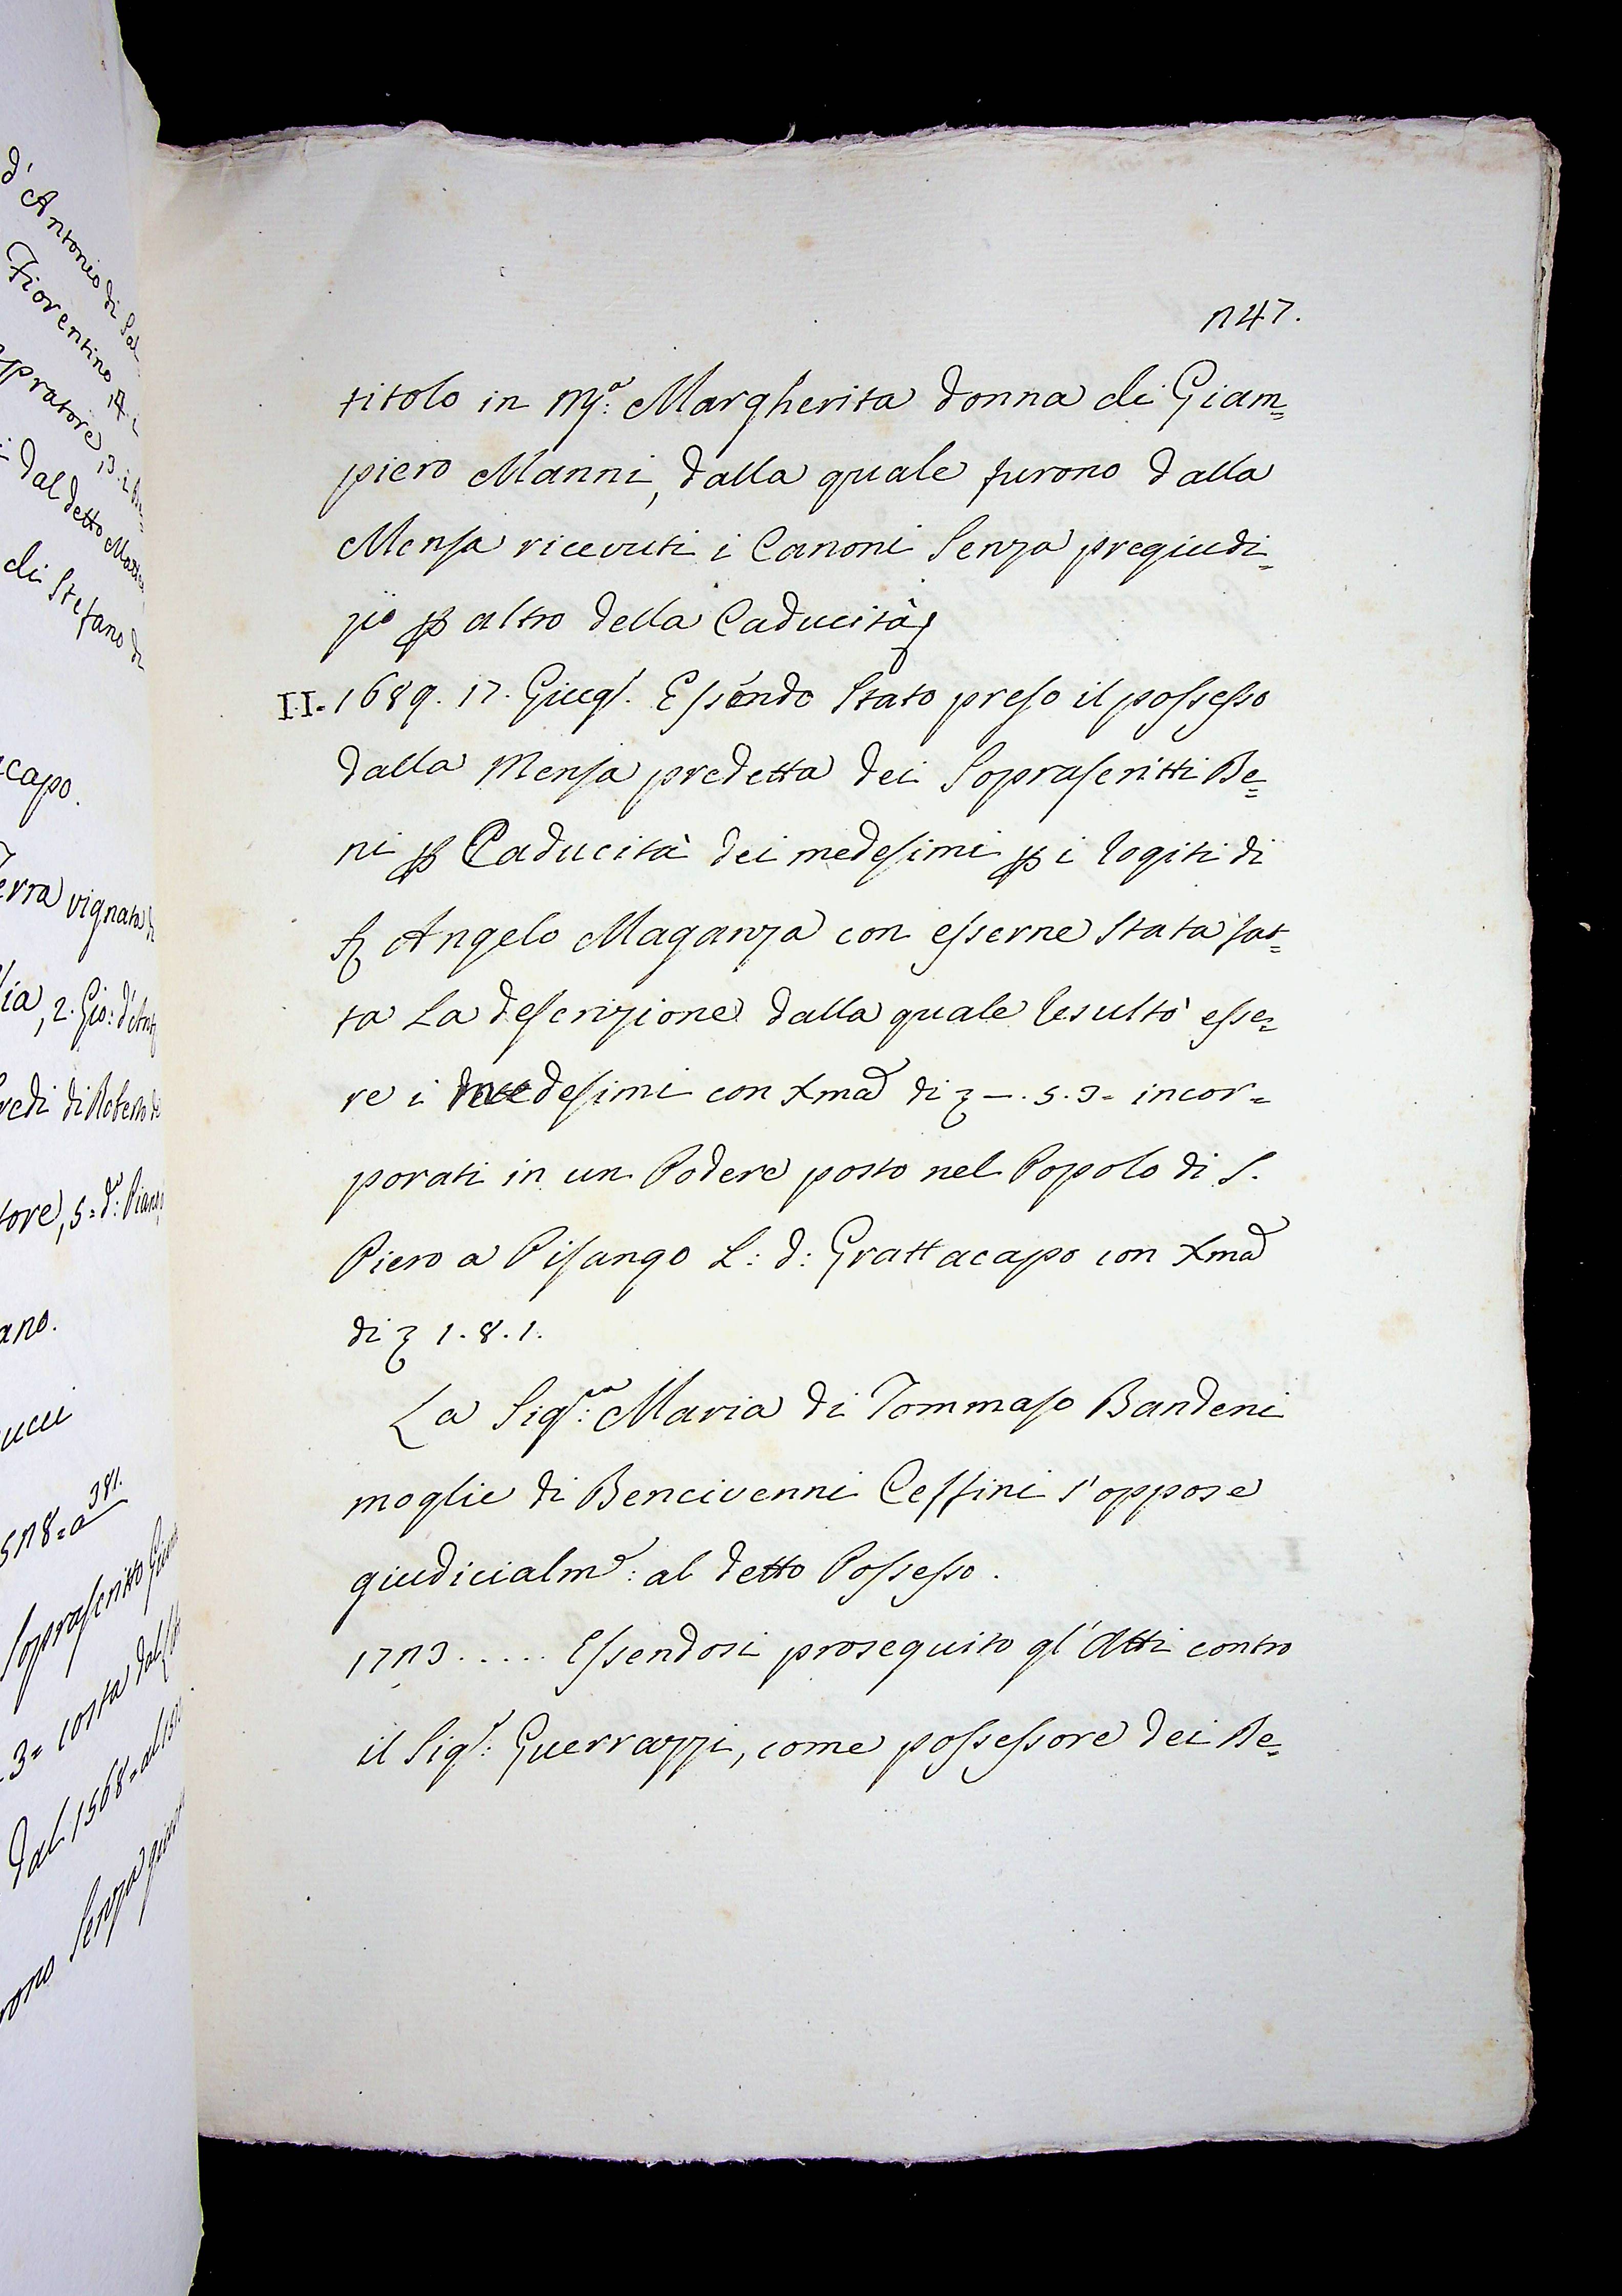 d'Antonio di Sal
Fiorentino 14. 2
pratore 13. 2
dal detto
di Stefano di
capo.
erra vignata
ia, 2. Gio: d'Ant
redi di Roberto
tore, 5= d:
ano.
ucci
5118=a 381.
Soprascritto
3= costa dal
dal 1568= al
rono Senza
1147.
titolo in M.ª Margherita donna di Giam=
piero Manni, dalla quale furono dalla
Mensa ricevuti i Canoni Senza pregiudi=
zio p altro della Caducità
II. 1689. 17. Giug.º Essendo Stato preso il possesso
dalla Mensa predetta dei Soprascritti Be=
ni p Caducità dei medesimi p i rogiti di
S Angelo Maganza con esserne Stata fat=
ta La descrizione dalla quale resultò esse=
re i medesimi con Xma di Ʒ —. 5. 3= incor=
porati in un Podere posto nel Popolo di S.
Piero a Pisango L: d: Grattacapo con Xma
di Ʒ 1. 8. 1.
La Sig.ra Maria di Tommaso Bandeni
moglie di Bencivenni Cessini s'oppose
giudicialm.e: al detto Possesso.
1713..... Essendosi proseguito gl'Atti contro
il Sig.r: Guerrazzi, come possessore dei Be=